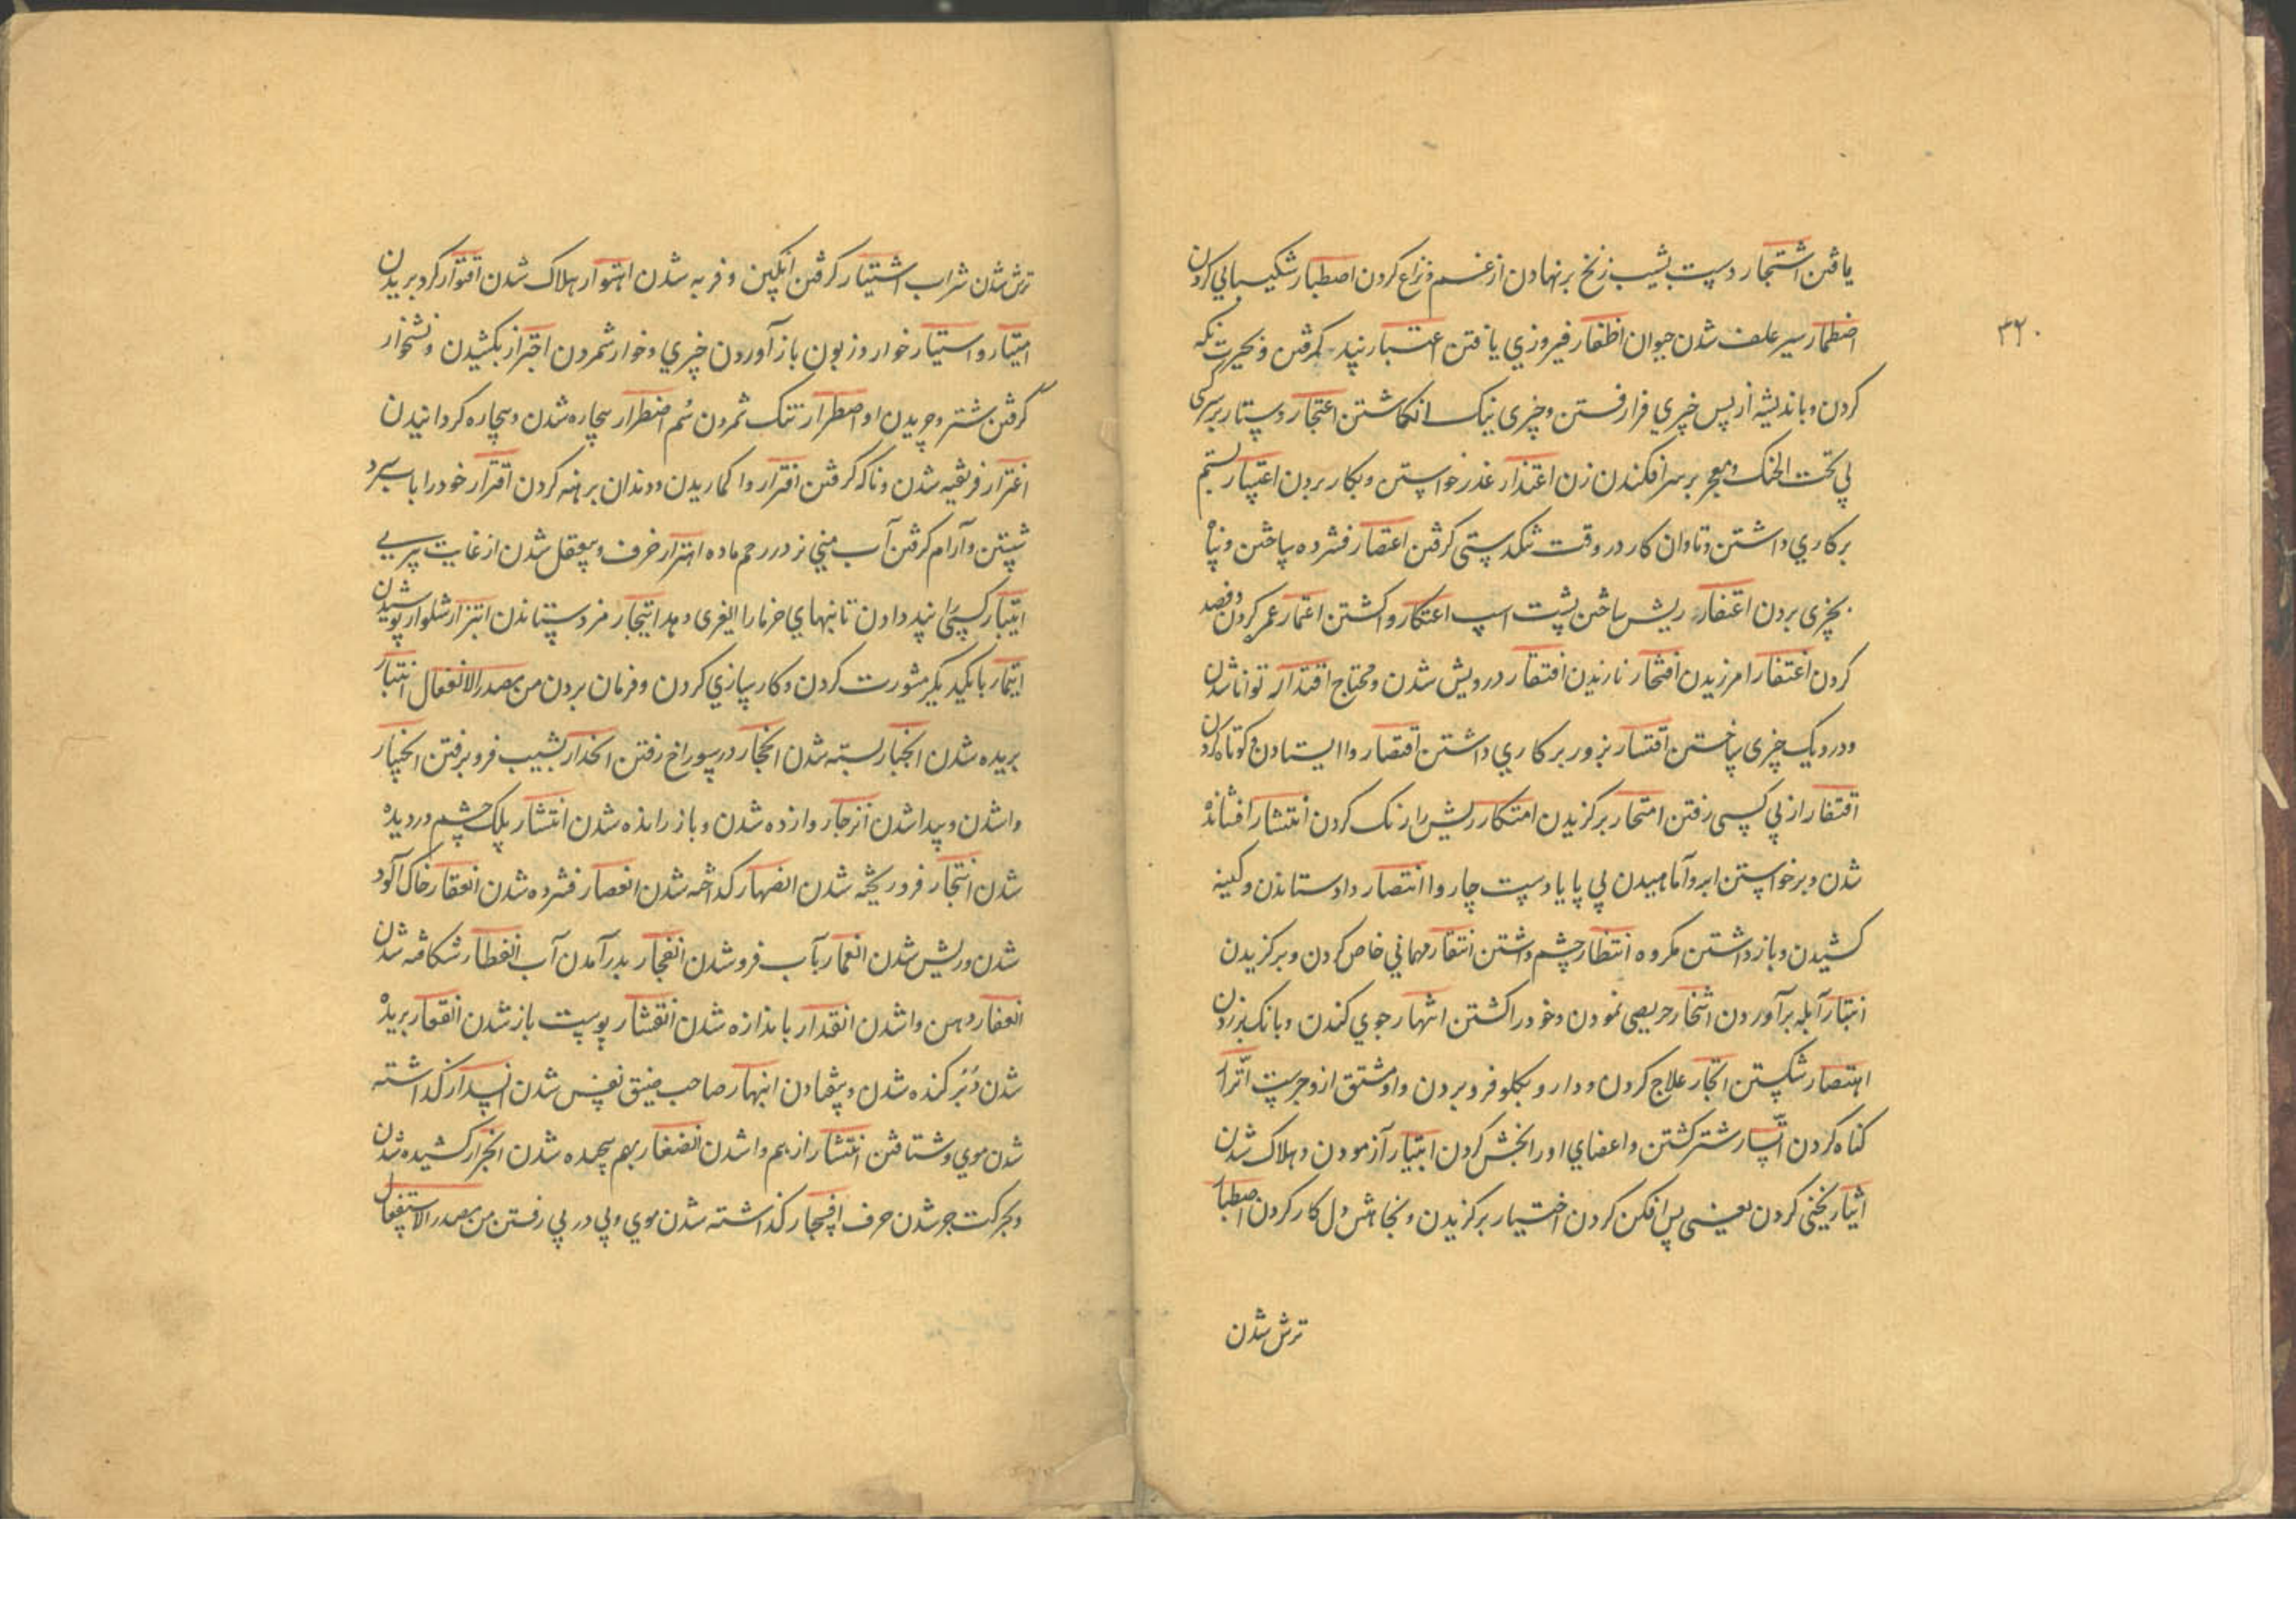 یافتن اشتجار دست بشیب زنخ برنهادن از غم و نزاع کردن اصطبار شکیبایی کردن
۳۲۰
اضطمار سیر علف شدن حیوان اظفار فیروزی یافتن اعتبار پند گرفتن و بحیرت نگه
کردن و باندیشه از پس چیزی فرا رفتن و چیزی نیک انگاشتن اعتجار دستار بر سر
بی تحت الحنک و معجر بر سر افکندن زن اعتذار عذر خواستن و بکار بردن اعتسار بستم
بر کاری داشتن و تاوان کار در وقت تنگدستی گرفتن اعتصار فشرده ساختن و پناه
بچیزی بردن اعتقار ریش ساختن پشت اسب اعتکار وا گشتن اعتمار عمر کردن و قصد
کردن اغتفار امرزیدن افتخار نازیدن افتقار درویش شدن و محتاج اقتدار توانا شدن
و در دیک چیزی ساختن اقتسار بزور بر کاری داشتن اقتصار وا ایستادن و کوتاه کردن
اقتفار از پی کسی رفتن امتحار برگزیدن امتکار ریش را رنگ کردن انتشار افشانده
شدن و برخواستن ابر و آماسیدن پی پا یا دست چاروا انتصار داد ستاندن و کینه
کشیدن و باز داشتن مکروه انتظار چشم داشتن انتقار مهمانی خاص کردن و برگزیدن
انتبار آبله برآوردن انتحار حریصی نمودن و خود را کشتن انتهار جوی کندن و بانک برزدن
اهتصار شکستن اتجار علاج کردن و دارو بکلو فرو بردن و او مشتق از وجرست اتزار
کناه کردن اتسار شتر کشتن و اعضای او را بخش کردن ابتیار آزمودن و هلاک شدن
اثیار یخنی کردن یعنی پس افکن کردن اختیار برگزیدن و بخاهش دل کار کردن اصطبار
ترش شدن
ترش شدن شراب اشتیار گرفتن انگبین و فربه شدن اهتوار هلاک شدن اقتوار گرد بریدن
امتیار و استیار خوار و زبون باز آوردن چیزی و خوار شمردن اجترار بکشیدن و نشخوار
گرفتن شتر و چریدن او اصطرار تنک شمردن سم اضطرار بیچاره شدن و بیچاره گردانیدن
اغترار فریفته شدن و ناگه گرفتن افترار وا کماریدن و دندان برهنه کردن اقترار خود را با سرد
شستن و آرام گرفتن آب منی نر در رحم ماده اهترار خرف و بیعقل شدن از غایت پیری
ایتبار کسی را پند دادن تا نبهای خرما را ایغری دهد ایتجار مزد ستاندن ایتزار شلوار پوشیدن
ایتمار با یکدیگر مشورت کردن و کارسازی کردن و فرمان بردن من مصدر الانفعال انبتار
بریده شدن انجبار بسته شدن انجحار در سوراخ رفتن انحدار بشیب فرو رفتن انحسار
وا شدن و پیدا شدن انزجار وا زده شدن و باز رانده شدن انتشار پلک چشم دردیده
شدن انثجار فرو ریخته شدن انصهار کداخته شدن انعصار فشرده شدن انعقار خاک آلود
شدن و ریش شدن انغمار بآب فرو شدن انفجار بدر آمدن آب انفطار شکافته شدن
انفغار دهن وا شدن انقدار باندازه شدن انقشار پوست باز شدن انقعار بریده
شدن و بر کنده شدن و بیفتادن انبهار صاحب ضیق نفس شدن انسدار کذاشته
شدن موی و شتافتن انتشار از هم وا شدن انضفار بهم پیچیده شدن انجرار کشیده شدن
و بحرکت جر شدن حرف انسجار کذاشته شدن موی و پی در پی رفتن من مصدر الاستفعال